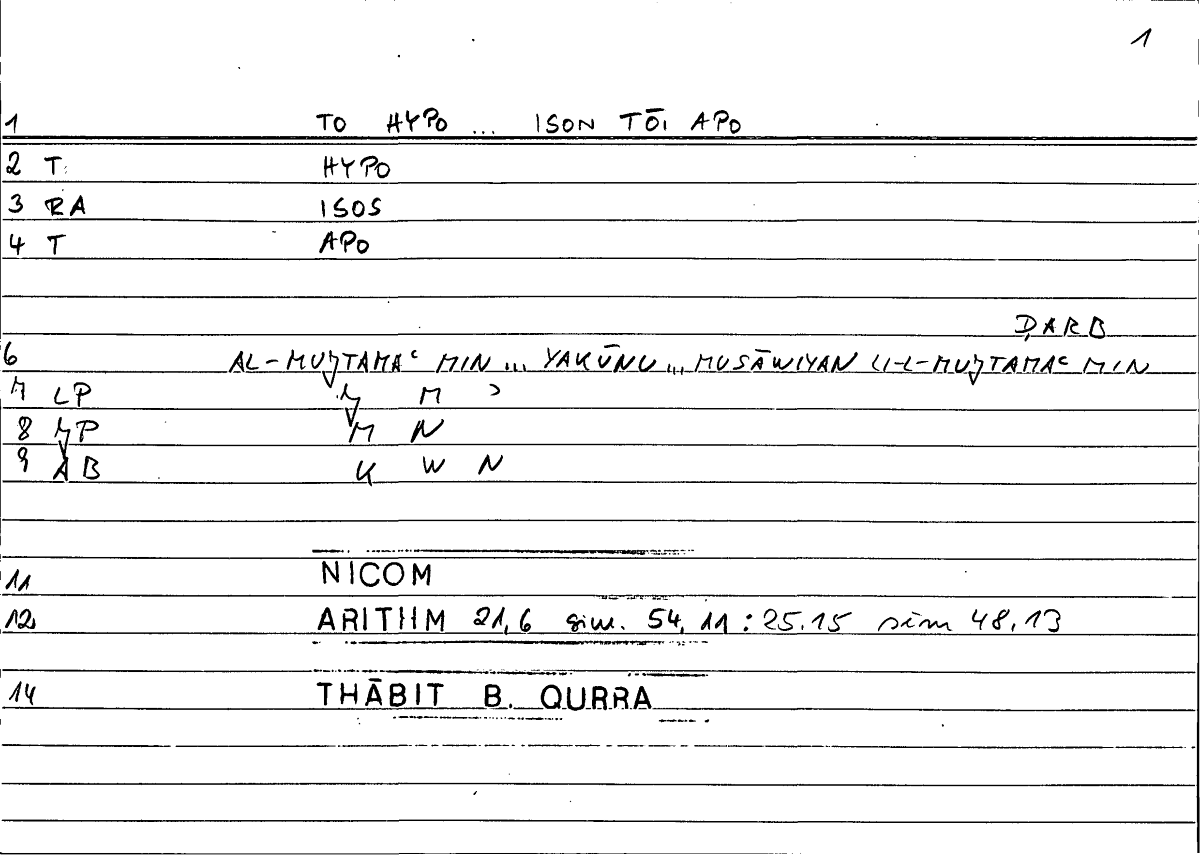 1
1 TO HYPO ... ISON TŌI APO
2 T HYPO
3 RA ISOS
4 T APO
ḌARB
6 AL-MUǦTAMAʿ MIN ... YAKŪNU ... MUSĀWIYAN LI-L-MUǦTAMAʿ MIN
7 LP Ǧ M ʿ
8 ǦP M N
9 AB K W N
11 NICOM
12 ARITHM 21,6 sim. 54, 11 : 25.15 sim 48,13
14 THĀBIT B. QURRA